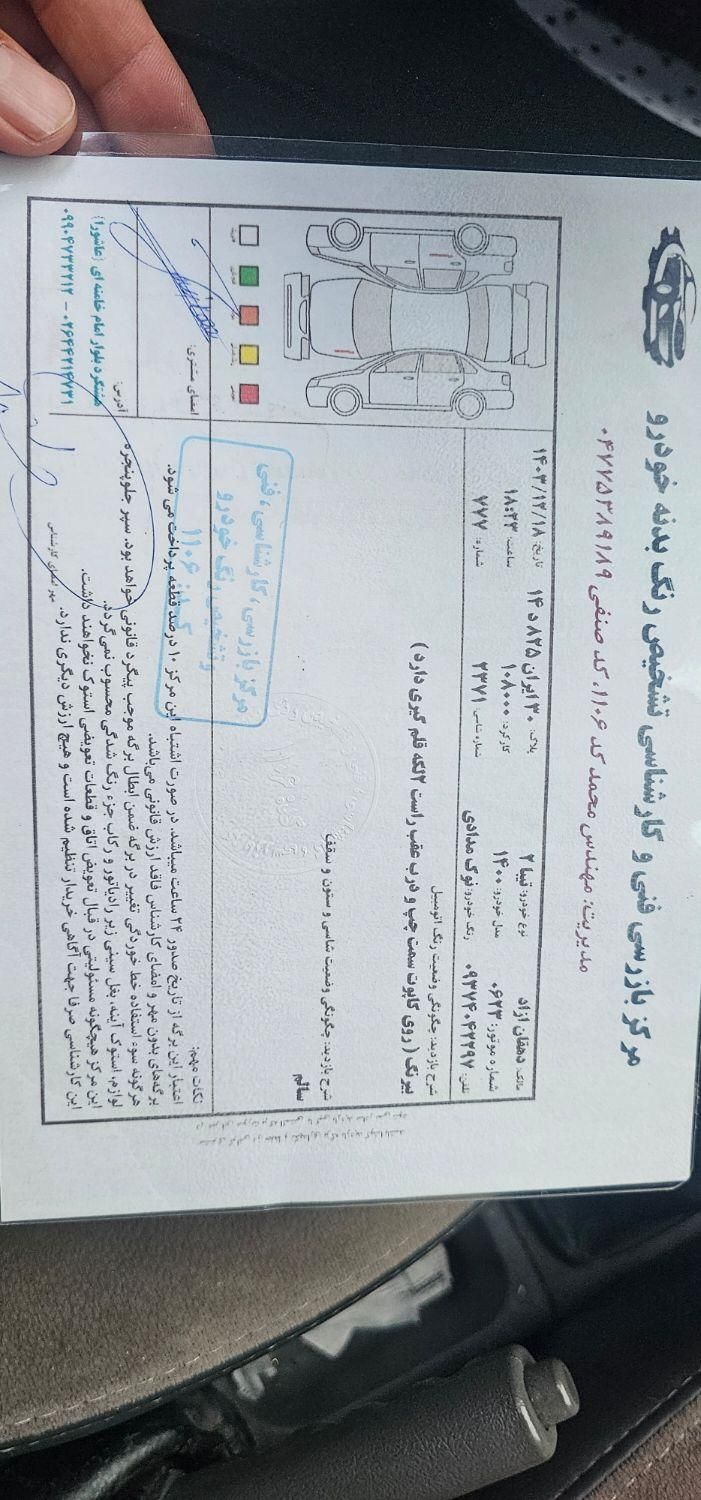 مرکز بازرسی فنی و کارشناسی تشخیص رنگ بدنه خودرو
مدیریت: مهندس محمد کد ۱۱۰۶. کد صنفی ۰۴۷۷۵۳۸۹۱۸۹
مالک: دهقان ازاد نوع خودرو: تیبا ۲ پلاک: ۳۰ ایران ۸۲۵ د ۱۴ تاریخ: ۱۴۰۳/۱۲/۱۸
شماره موتور: ۰۶۲۳ مدل خودرو: ۱۴۰۰ کارکرد: ۱۰۸۰۰۰ ساعت: ۱۸:۳۳
تلفن: ۰۹۳۷۴۰۴۲۲۹۷ رنگ خودرو: نوک مدادی شماره شاسی: ۲۳۷۱ شماره: ۷۷۷
شرح بازدید: چگونگی وضعیت رنگ اتومبیل
بیرنگ ( روی کاپوت سمت چپ و درب عقب راست ۲لکه قلم گیری دارد )
شرح بازدید: چگونگی وضعیت شاسی و ستون و سقف
سالم
مرکز بازرسی، کارشناسی، فنی
و تشخیص رنگ خودرو
کد: ۱۱۰۶
نکات مهم:
اعتبار این برگه از تاریخ صدور ۲۴ ساعت میباشد. در صورت اشتباه این مرکز ۱۰ درصد قطعه پرداخت می شود.
برگه‌های بدون مهر و امضای کارشناس فاقد ارزش قانونی می‌باشد.
هرگونه سوء استفاده خط خوردگی تغییر در برگه ضمن ابطال برگه موجب پیگرد قانونی خواهد بود. سپر جلوپنجره
لوازم، استوک آینه، بغل سینی زیر رادیاتور و رکاب جزء رنگ شدگی محسوب نمی‌گردد.
این مرکز هیچگونه مسئولیتی در قبال تعویض اتاق و قطعات تعویضی استوک نخواهند داشت.
این کارشناسی صرفا جهت آگاهی خریدار تنظیم شده است و هیچ ارزش دیگری ندارد.
مهر امضای کارشناس
امضای مشتری:
آدرس:
هشتگرد بلوار امام خامنه ای (عاشورا)
۰۹۹۰۴۷۳۳۲۱۲ - ۰۲۶۴۴۲۱۴۷۳۱